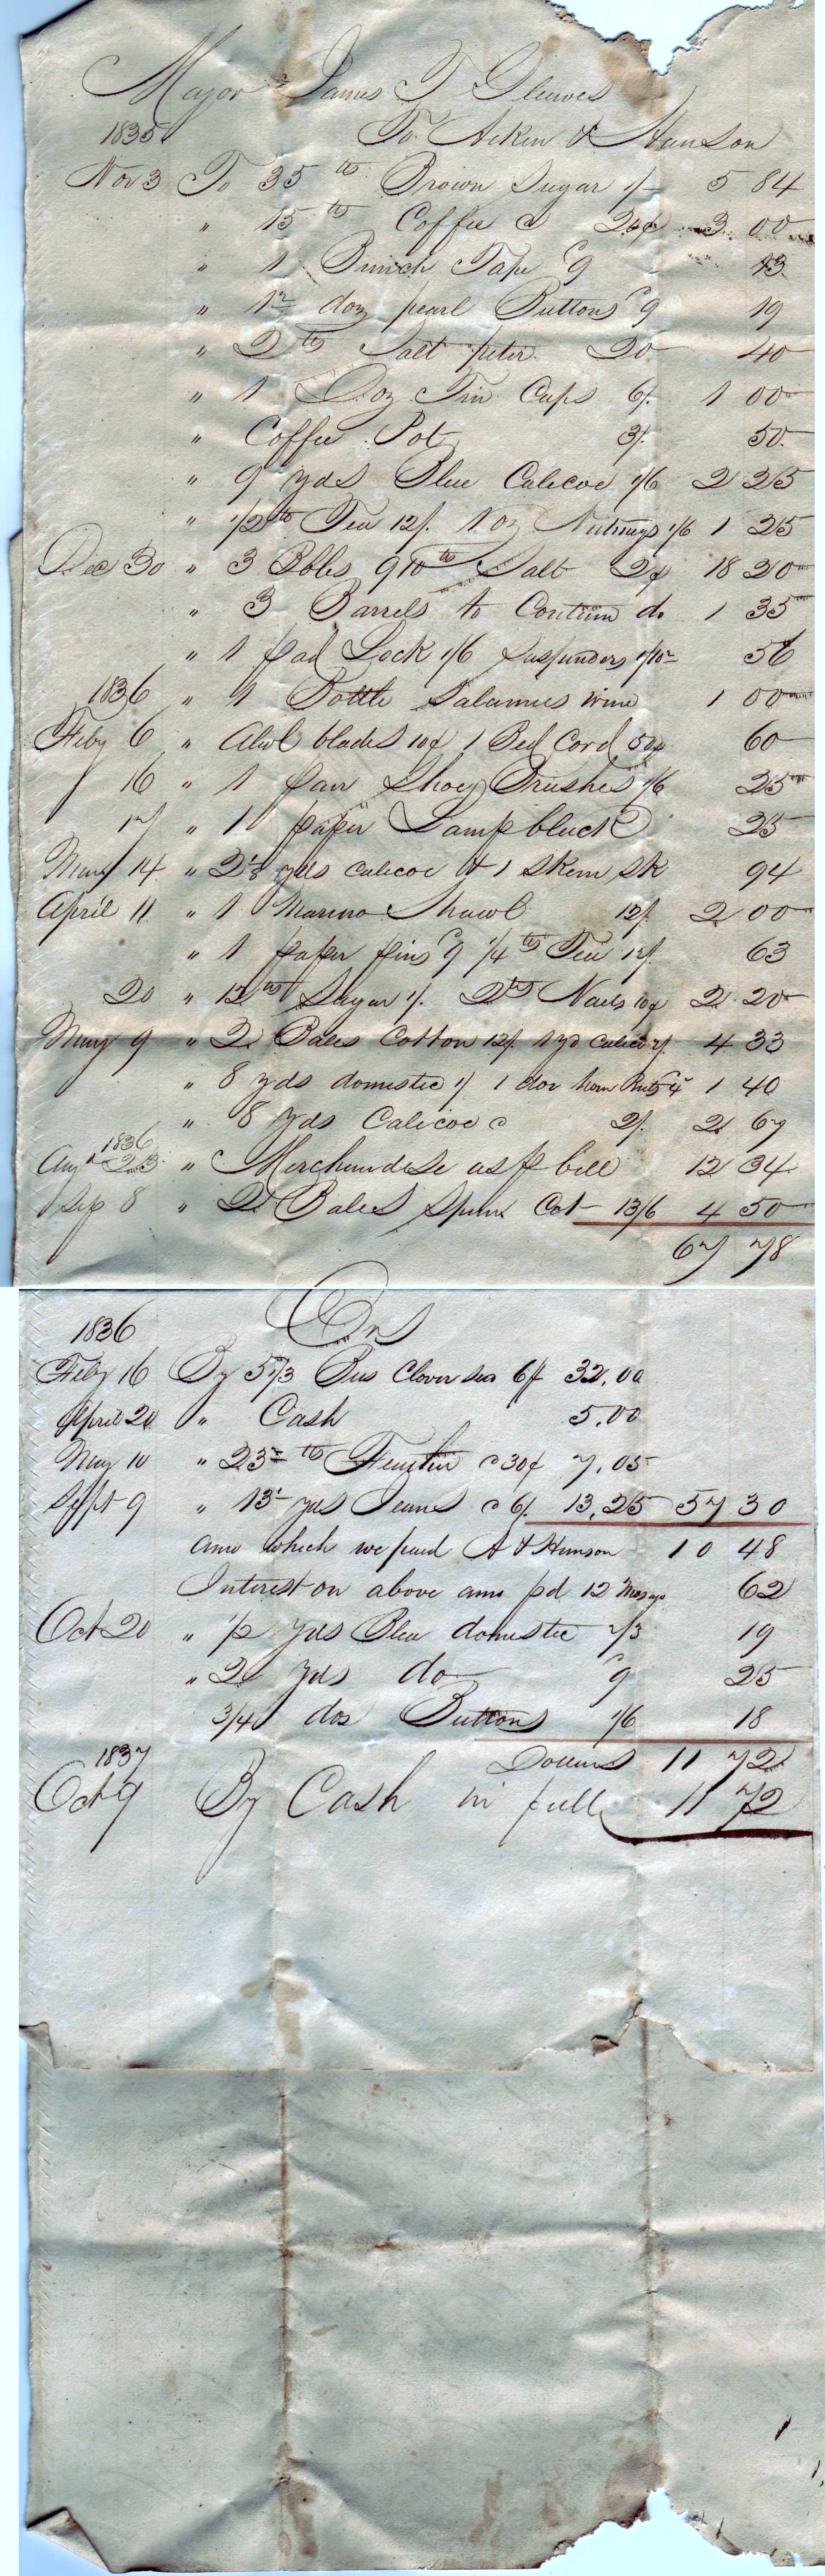 Major James T Gleaves
1835 To Aiken & Hunson
Nov 3 To 35 lb Brown Sugar 1/- 5 84
" 15 lb Coffee @ 20¢ 3 00
" 1 Bunch Tape 9 13
" 1 1/2 doz pearl Buttons 9 19
" 2 lb Salt peter 20 40
" 1 Doz Tin Cups 6/. 1 00
" Coffee Pot 3/. 50
" 9 yds Blue Calicoe 1/6 2 25
" 1/2 lb Tea 12/. 1 oz Nutmegs 1/6 1 25
Dec 30 " 3 Bbls 910 lb Salt 2¢ 18 20
" 3 Barrels to Contain do 1 35
" 1 pad Lock 1/6 Suspenders 56
1836 " 1 Bottle wine 1 00
Feby 6 " Awl blades 10¢ 1 Bed Cord 50¢ 60
16 " 1 pair Shoey Brushes 1/6 25
17 " 1 paper Lamp black 25
14 " yds calicoe & 1 Skein Sk 94
April 11 " 1 Marino Shawl 12/. 2 00
" 1 paper pins 9 1/4 lb Tea 12/. 63
20 " 12 lb Sugar 1/. 2 lb Nails 10¢ 2 20
May 9 " 2 Bales Cotton 12/. 1 yd calico 2/. 4 33
" 8 yds domestic 1/ 1 doz 1 40
" 8 yds Calicoe @ 2/. 2 67
1836
Aug 23 " Merchandise as p bill 12 34
Sep 8 " 2 Bales Spun Cot 13/6 4 50
67 78
1836 Crs
Feby 16 By 5 1/3 Bus Clover sea 6$ 32,00
April 20 " Cash 5,00
May 10 " 23 1/2 lb @ 30¢ 7,05
Sept 9 " yds Jeans @ 6/. 13,25 57 30
amo which we paid A & Hunson 10 48
Interest on above amo pd 12 62
Oct 20 " 1/2 yds Blea domestic 2/3 19
" 2 yds do 9 25
3/4 doz Buttons 1/6 18
1837 Dollars 11 72
Oct 9 By Cash in full 11 72